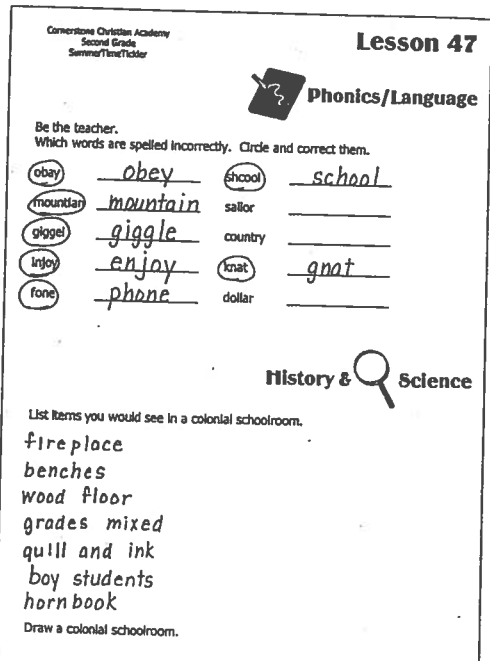 Cornerstone Christian Academy
Second Grade
SummerTimeTickler
Lesson 47
Phonics/Language
Be the teacher.
Which words are spelled incorrectly. Circle and correct them.
obay obey shcool school
mountian mountain sailor
giggel giggle country
injoy enjoy knat gnat
fone phone dollar
History & Science
List items you would see in a colonial schoolroom.
fireplace
benches
wood floor
grades mixed
quill and ink
boy students
hornbook
Draw a colonial schoolroom.